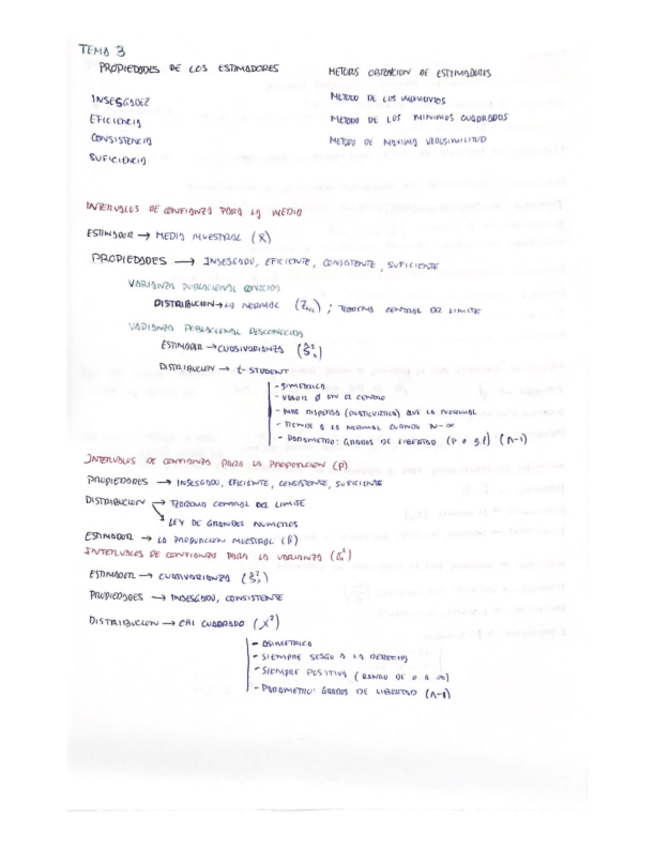 TEMA 3
PROPIEDADES DE LOS ESTIMADORES
INSESGADEZ
EFICIENCIA
CONSISTENCIA
SUFICIENCIA
METODOS OBTENCION DE ESTIMADORES
METODO DE LOS MOMENTOS
METODO DE LOS MINIMOS CUADRADOS
METODO DE MAXIMA VEROSIMILITUD
INTERVALOS DE CONFIANZA PARA LA MEDIA
ESTIMADOR → MEDIA MUESTRAL (X̄)
PROPIEDADES → INSESGADO, EFICIENTE, CONSISTENTE, SUFICIENTE
VARIANZA POBLACIONAL CONOCIDA
DISTRIBUCION → LA NORMAL ; TEOREMA CENTRAL DEL LIMITE
VARIANZA POBLACIONAL DESCONOCIDA
ESTIMADOR → CUASIVARIANZA
DISTRIBUCION → t-STUDENT
- SIMETRICA
- VALOR 0 EN EL CENTRO
- MAS DISPERSA (PLATICURTICA) QUE LA NORMAL
- TIENDE A LA NORMAL CUANDO N→∞
- PARAMETRO: GRADOS DE LIBERTAD (n-1)
INTERVALOS DE CONFIANZA PARA LA PROPORCION (P)
PROPIEDADES → INSESGADO, EFICIENTE, CONSISTENTE, SUFICIENTE
DISTRIBUCION → TEOREMA CENTRAL DEL LIMITE
↘ LEY DE GRANDES NUMEROS
ESTIMADOR → LA PROPORCION MUESTRAL (P̂)
INTERVALOS DE CONFIANZA PARA LA VARIANZA
ESTIMADOR → CUASIVARIANZA
PROPIEDADES → INSESGADO, CONSISTENTE
DISTRIBUCION → CHI CUADRADO (X²)
- ASIMETRICA
- SIEMPRE SESGO A LA DERECHA
- SIEMPRE POSITIVA (RANGO DE 0 A ∞)
- PARAMETRO: GRADOS DE LIBERTAD (n-1)